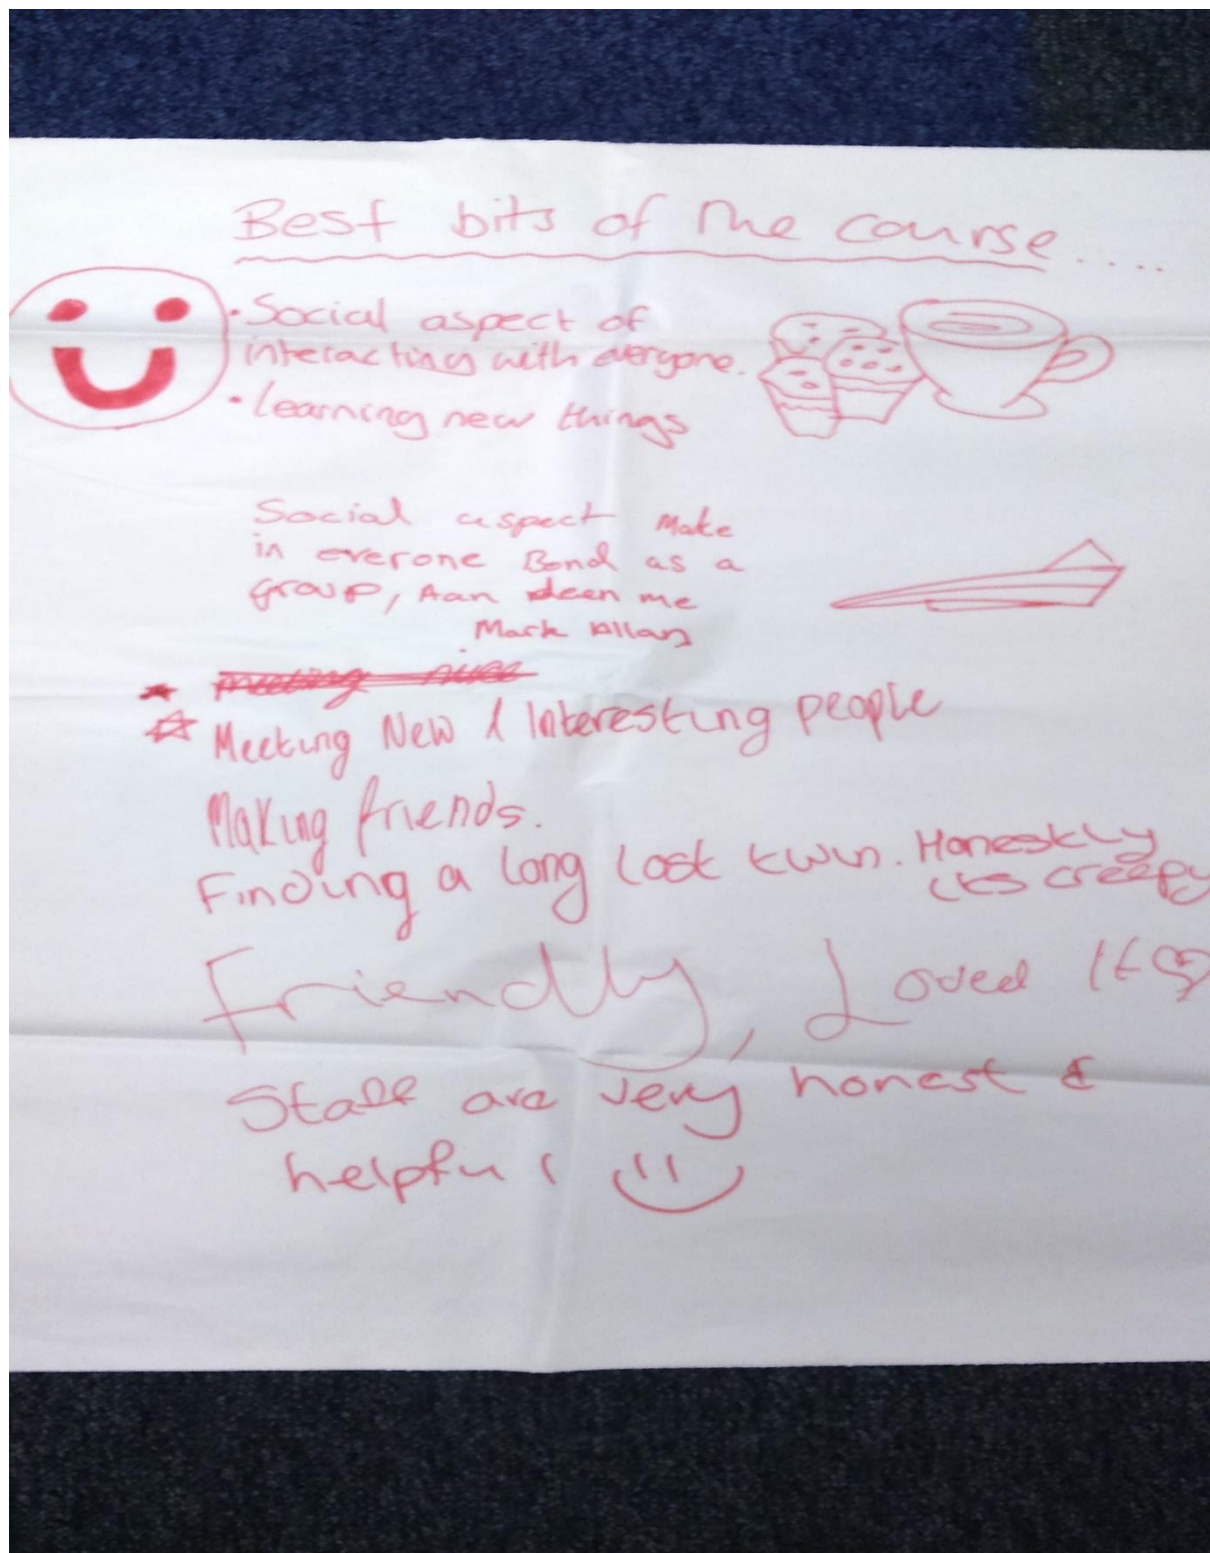 Best bits of the course.....
• Social aspect of
interacting with everyone.
• learning new things
Social aspect make
in everone Bond as a
group, Aan deen me
Mark Allan
meeting nice
Meeting New & Interesting people
Making friends.
Finding a long lost twin. Honestly
its creepy
Friendly, Loved It
Staff are very honest &
helpful